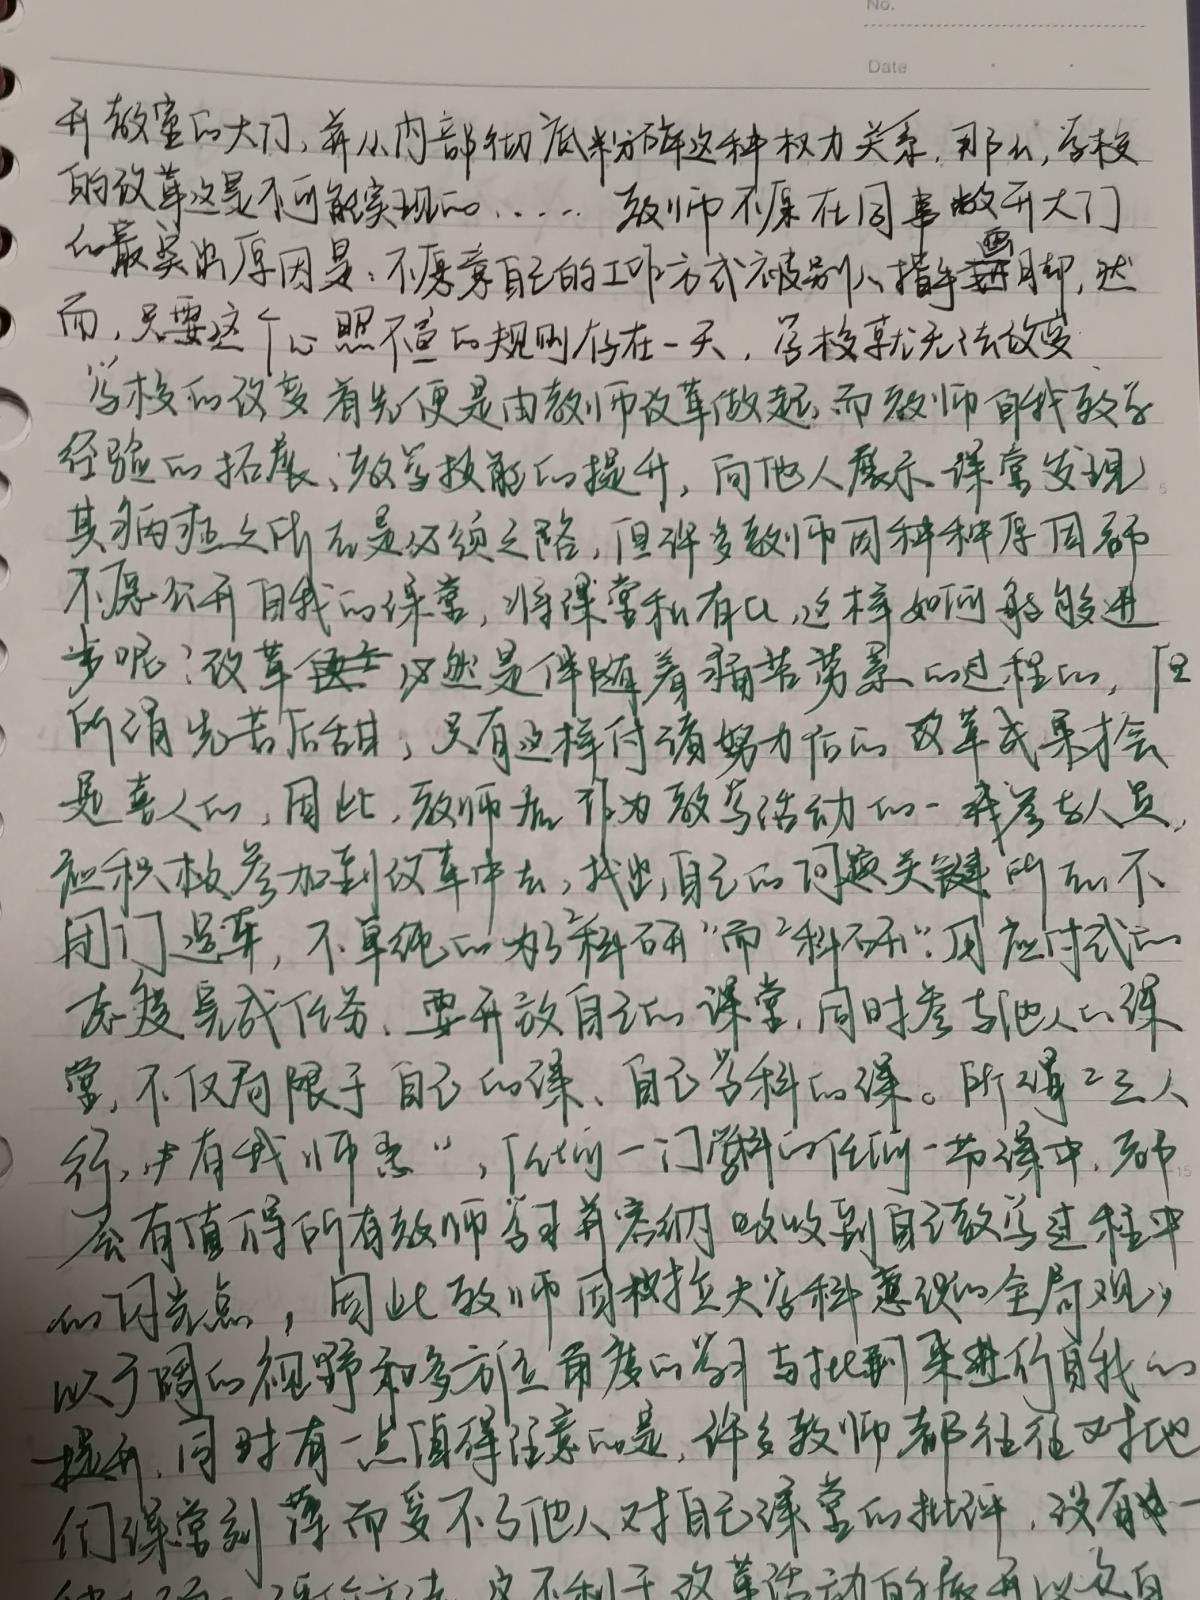 No.
Date
开教室的大门,并从内部彻底粉碎这种权力关系,那么,学校
的改革这是不可能实现的...... 教师不愿在同事敞开大门
的最突出原因是:不愿意自己的工作方式被别人指手画脚,然
而,只要这个心照不宣的规则存在一天,学校就无法改变
学校的改变首先便是由教师改革做起,而教师自我教学
经验的拓展、教学技能的提升,向他人展示课堂发现
5
其病症之所在是必须之路,但许多教师因种种原因都
不愿公开自我的课堂,将课堂私有化,这样如何能够进
步呢?改革必然是伴随着痛苦劳累的过程的,但
所谓先苦后甜,只有这样付诸努力后的改革成果才会
是喜人的,因此,教师作为教学活动的一线参与人员,
应积极参加到改革中去,找出自己的问题关键所在,不
闭门造车,不单纯的为了“科研”而“科研”.用应付式的
态度完成任务、要开放自己的课堂,同时参与他人的课
堂,不仅局限于自己的课、自己学科的课。所谓“三人
行,必有我师焉”,任何一门学科的任何一节课中,都
15
会有值得所有教师学习并容纳吸收到自己教学过程中
的闪光点,因此教师因树立大学科意识的全局观,
以广阔的视野和多方位角度的学习与批判来进行自我的
提升,同时有一点值得注意的是,许多教师都往往对他
们课堂刻薄而受不了他人对自己课堂的批评,没有一
这不利于改革活动的展开以及自